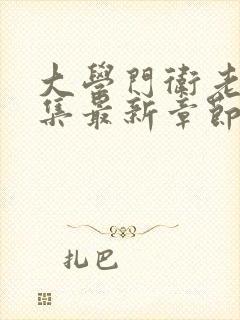 大學門衛老
集最新章節
扎巴